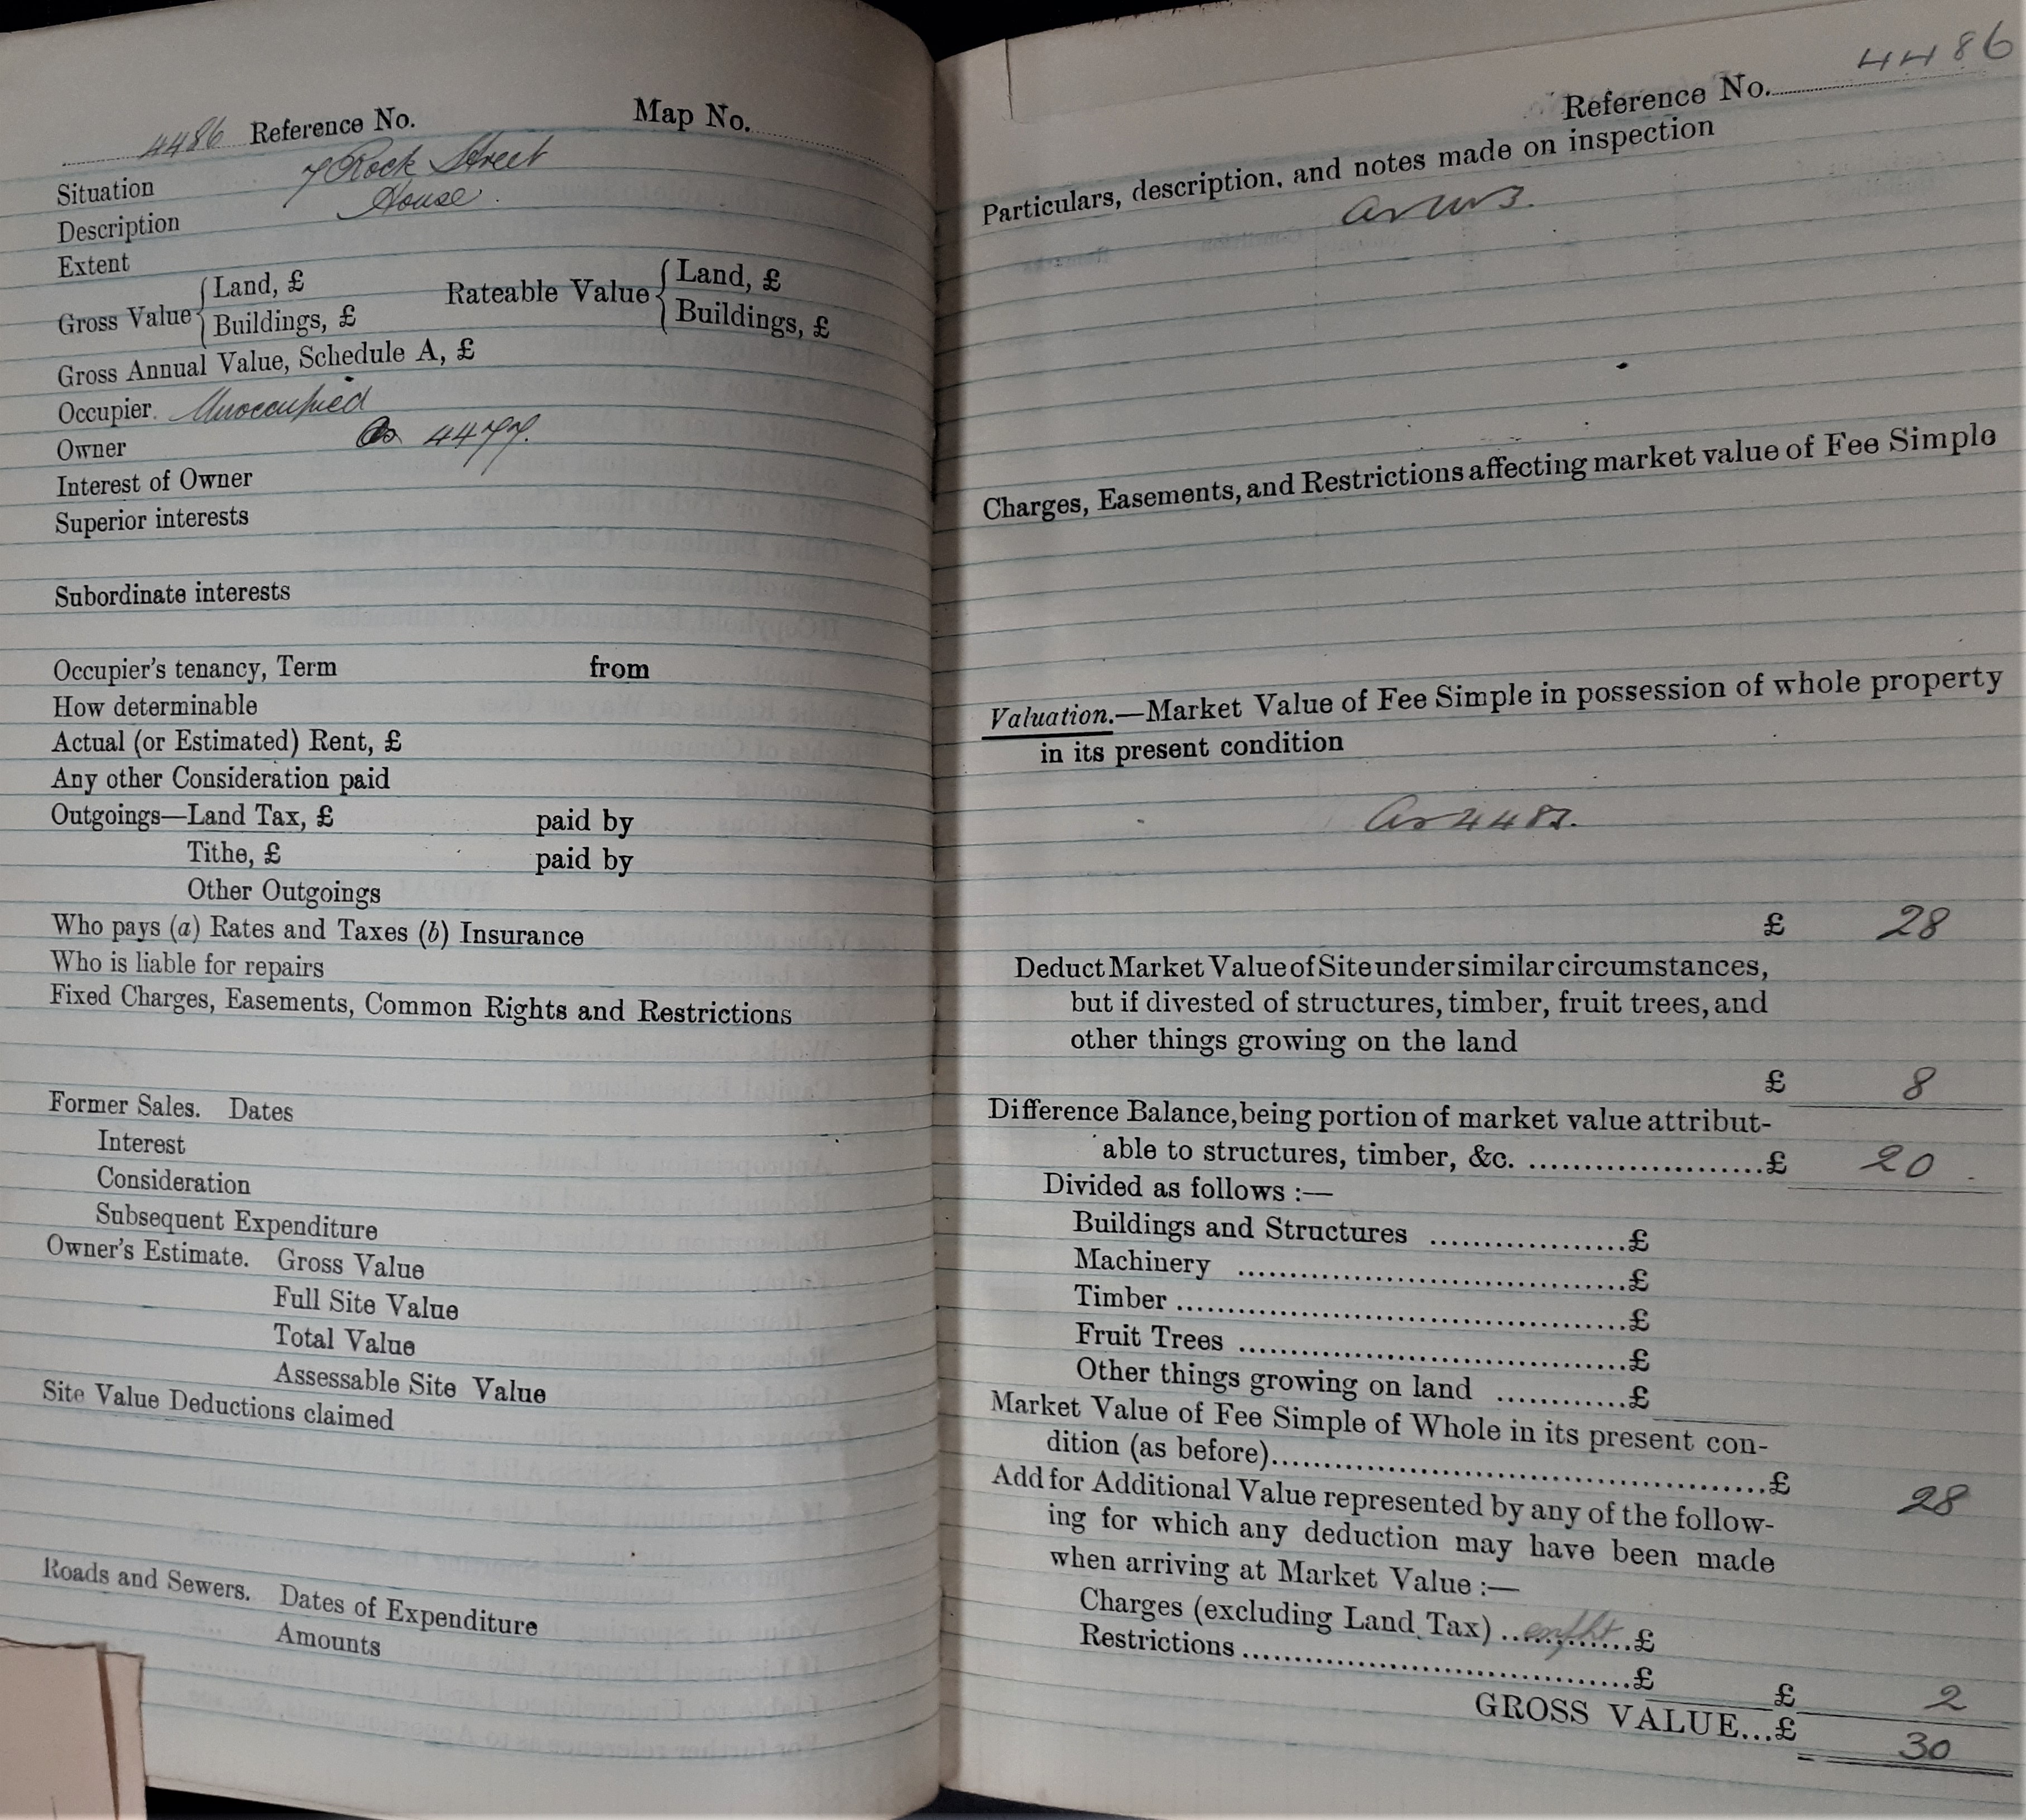 4486 Reference No. Map No.
Situation 7 Rock Street
Description House
Extent
Gross Value { Land, £ Rateable Value { Land, £
Buildings, £ Buildings, £
Gross Annual Value, Schedule A, £
Occupier. Unoccupied
Owner As 4477.
Interest of Owner
Superior interests
Subordinate interests
Occupier's tenancy, Term from
How determinable
Actual (or Estimated) Rent, £
Any other Consideration paid
Outgoings—Land Tax, £ paid by
Tithe, £ paid by
Other Outgoings
Who pays (a) Rates and Taxes (b) Insurance
Who is liable for repairs
Fixed Charges, Easements, Common Rights and Restrictions
Former Sales. Dates
Interest
Consideration
Subsequent Expenditure
Owner's Estimate. Gross Value
Full Site Value
Total Value
Assessable Site Value
Site Value Deductions claimed
Roads and Sewers. Dates of Expenditure
Amounts
Reference No. 4486
Particulars, description, and notes made on inspection
Charges, Easements, and Restrictions affecting market value of Fee Simple
Valuation.—Market Value of Fee Simple in possession of whole property
in its present condition
As
£ 28
Deduct Market Value of Site under similar circumstances,
but if divested of structures, timber, fruit trees, and
other things growing on the land
£ 8
Difference Balance, being portion of market value attribut-
able to structures, timber, &c. .....................£ 20
Divided as follows :—
Buildings and Structures ..................£
Machinery ....................................£
Timber ..........................................£
Fruit Trees ....................................£
Other things growing on land ............£
Market Value of Fee Simple of Whole in its present con-
dition (as before)................................................£ 28
Add for Additional Value represented by any of the follow-
ing for which any deduction may have been made
when arriving at Market Value :—
Charges (excluding Land Tax) ............£
Restrictions ....................................£
£ 2
GROSS VALUE...£ 30